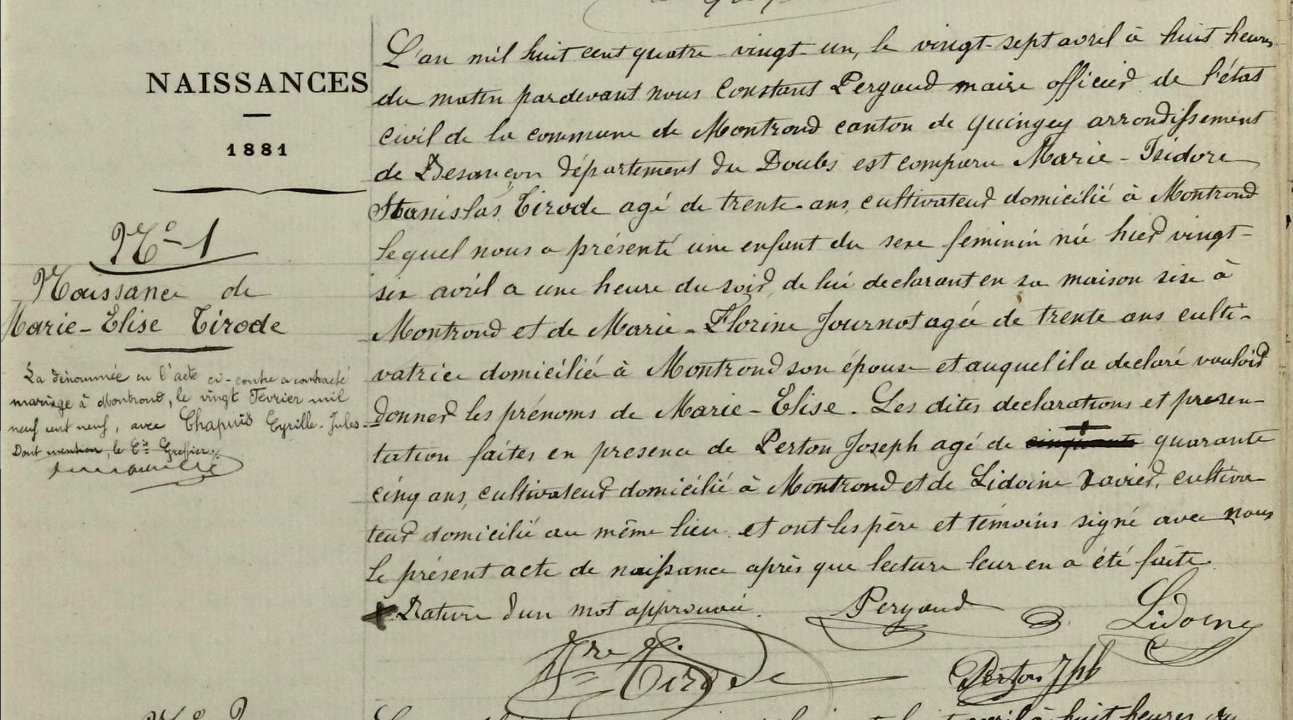 NAISSANCES
1881
N° 1
Naissance de
Marie-Elise Tirode
La dénommée en l'acte ci-contre a contracté
mariage à Montrond, le vingt Février mil
neuf cent neuf, avec Chapuis Cyrille-Jules
Dont mention, le Cis Greffier
L'an mil huit cent quatre-vingt-un, le vingt-sept avril à huit heures
du matin pardevant nous Constant Pergaud maire officier de l'état
civil de la commune de Montrond canton de Quingey arrondissement
de Besançon département du Doubs est comparu Marie-Isidore
Stanislas Tirode agé de trente ans, cultivateur domicilié à Montrond
lequel nous a présenté une enfant du sexe feminin née hier vingt-
six avril a une heure du soir, de lui declarant en sa maison sise à
Montrond et de Marie-Florine Journot agée de trente ans culti-
vatrice domiciliée à Montrond son épouse et auquel il a declaré vouloir
donner les prénoms de Marie-Elise. Les dites declarations et presen-
tation faites en presence de Perton Joseph agé de cinquante quarante
cinq ans, cultivateur domicilié à Montrond et de Lidoine Xavier, cultiva-
teur domicilié au même lieu et ont les père et témoins signé avec nous
le présent acte de naissance après que lecture leur en a été faite.
Rature d'un mot approuvée.
Pergaud Lidoine
Tirode Perton Jph